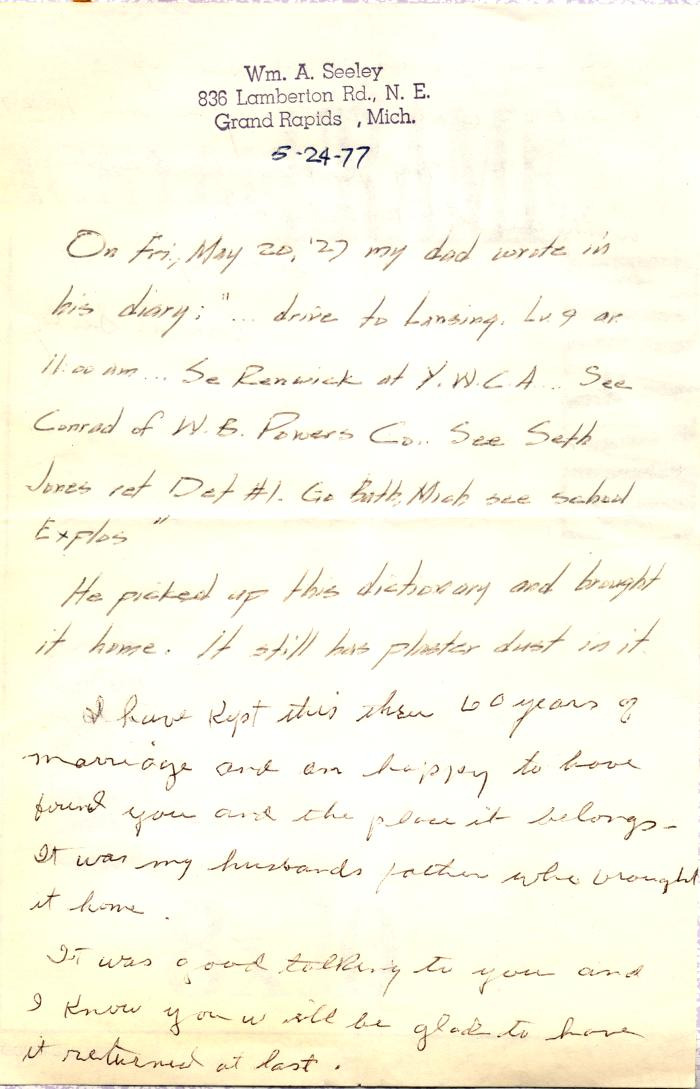 Wm. A. Seeley
836 Lamberton Rd., N. E.
Grand Rapids , Mich.
5-24-77
On Fri., May 20, '27 my dad wrote in
his diary: "... drive to Lansing. Lv. 9 ar.
11:00 am... Se Renwick at Y.W.C.A... See
Conrad of W.B. Powers Co.. See Seth
Jones ret Det #1. Go Bath, Mich see school
Explos"
He picked up this dictionary and brought
it home. It still has plaster dust in it.
I have kept this thru 60 years of
marriage and am happy to have
found you and the place it belongs -
It was my husbands father who brought
it home.
It was good talking to you and
I know you will be glad to have
it returned at last.